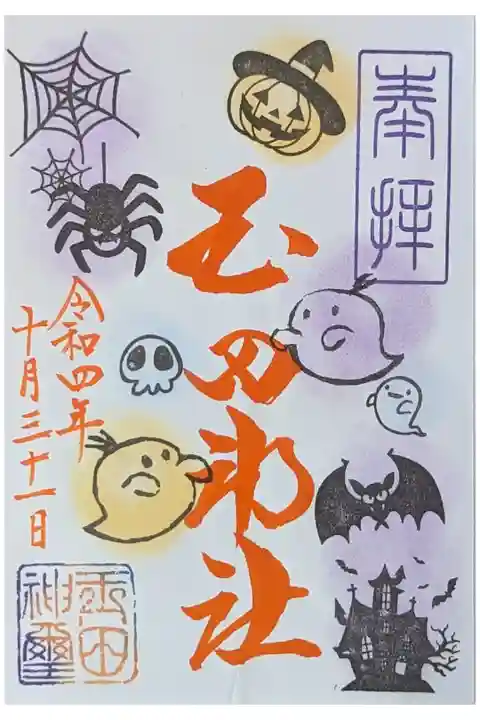 奉拝
玉田神社
令和四年
十月三十一日
玉田
神璽